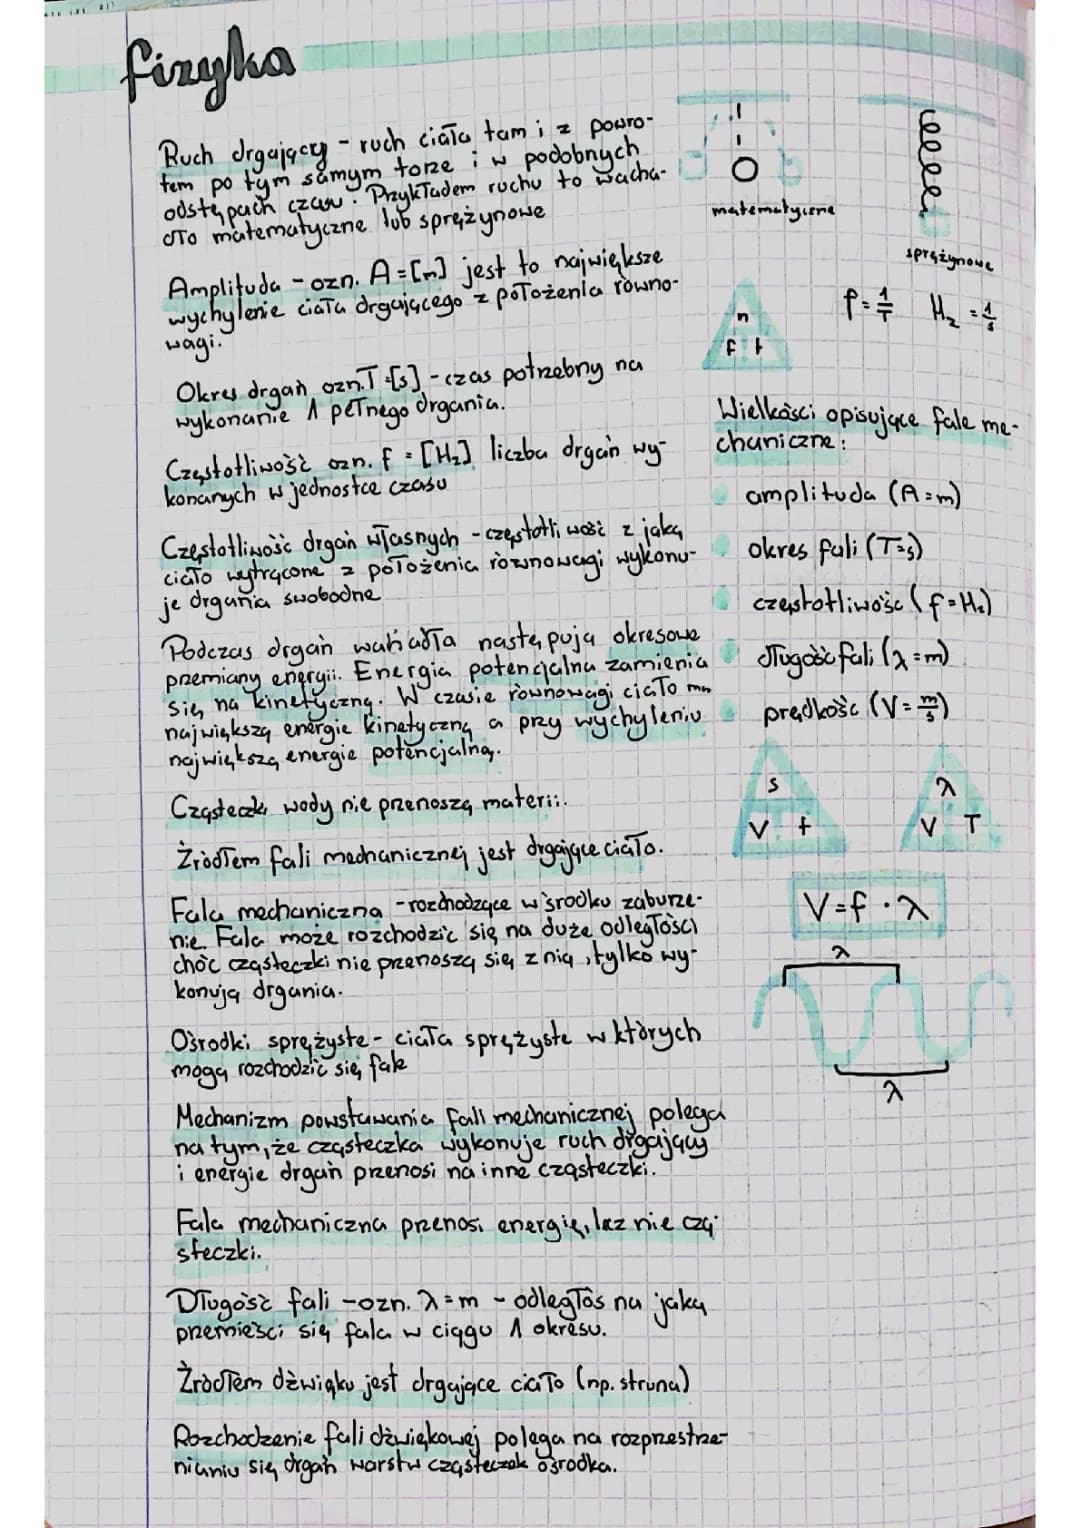 fizyka
Ruch drgający - ruch ciała tam i z powro-
tem po tym samym torze i w podobnych
odstępach czasu. Przykładem ruchu to wacha-
dło matematyczne lub sprężynowe
Amplituda - ozn. A=[m] jest to największe
wychylenie ciała drgającego z położenia równo-
wagi.
Okres drgań ozn. T=[s] - czas potrzebny na
wykonanie 1 pełnego drgania.
Częstotliwość ozn. f = [Hz] liczba drgań wy-
konanych w jednostce czasu
Częstotliwość drgań własnych - częstotliwość z jaką
ciało wytrącone z położenia równowagi wykonu-
je drgania swobodne
Podczas drgań wahadła następują okresowe
przemiany energii. Energia potencjalna zamienia
się na kinetyczną. W czasie równowagi ciało ma
największą energie kinetyczną a przy wychyleniu
największą energie potencjalną.
Cząsteczki wody nie przenoszą materii.
Źródłem fali mechanicznej jest drgające ciało.
Fala mechaniczna - rozchodzące w środku zaburze-
nie. Fala może rozchodzić się na duże odległości
choć cząsteczki nie przenoszą się z nią, tylko wy-
konują drgania.
Ośrodki sprężyste - ciała sprężyste w których
mogą rozchodzić się fale
Mechanizm powstawania fali mechanicznej polega
na tym, że cząsteczka wykonuje ruch drgający
i energie drgań przenosi na inne cząsteczki.
Fala mechaniczna przenosi energię, lecz nie czą-
steczki.
Długość fali - ozn. λ=m - odległoś na jaką
przemieści się fala w ciągu 1 okresu.
Źródłem dźwięku jest drgające ciało (np. struna)
Rozchodzenie fali dźwiękowej polega na rozprzestrze-
nianiu się drgań warstw cząsteczek ośrodka.
matematyczne
sprężynowe
n
f t
f = 1/T Hz = 1/s
Wielkości opisujące fale me-
chaniczne:
amplituda (A=m)
okres fali (T=s)
częstotliwość (f=Hz)
długość fali (λ=m)
prędkość (V=m/s)
s
V t
λ
V T
V=f·λ
λ
λ